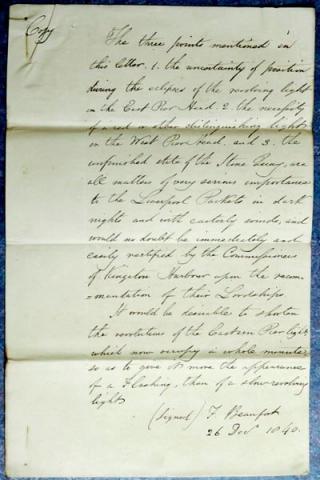 Copy
The three points mentioned in
this letter. 1. the uncertainty of position
during the eclipse of the revolving light
on the East Pier Head. 2. the necessity
of a red or other distinguishing light
on the West Pier Head. and 3. the
unfinished state of the Stone Quay, are
all matters of very serious importance
to the Liverpool Packets in dark
nights and with easterly winds, and
would no doubt be immediately and
easily rectified by the Commissioners
of Kingston Harbour upon the recom
=mendation of their Lordships.
It would be desirable to shorten
the revolutions of the Eastern Pier light
which now occupy a whole minute,
so as to give it more the appearance
of a Flashing, than of a slow revolving
light
(signed) F. Beaufort
26 Decr 1840.